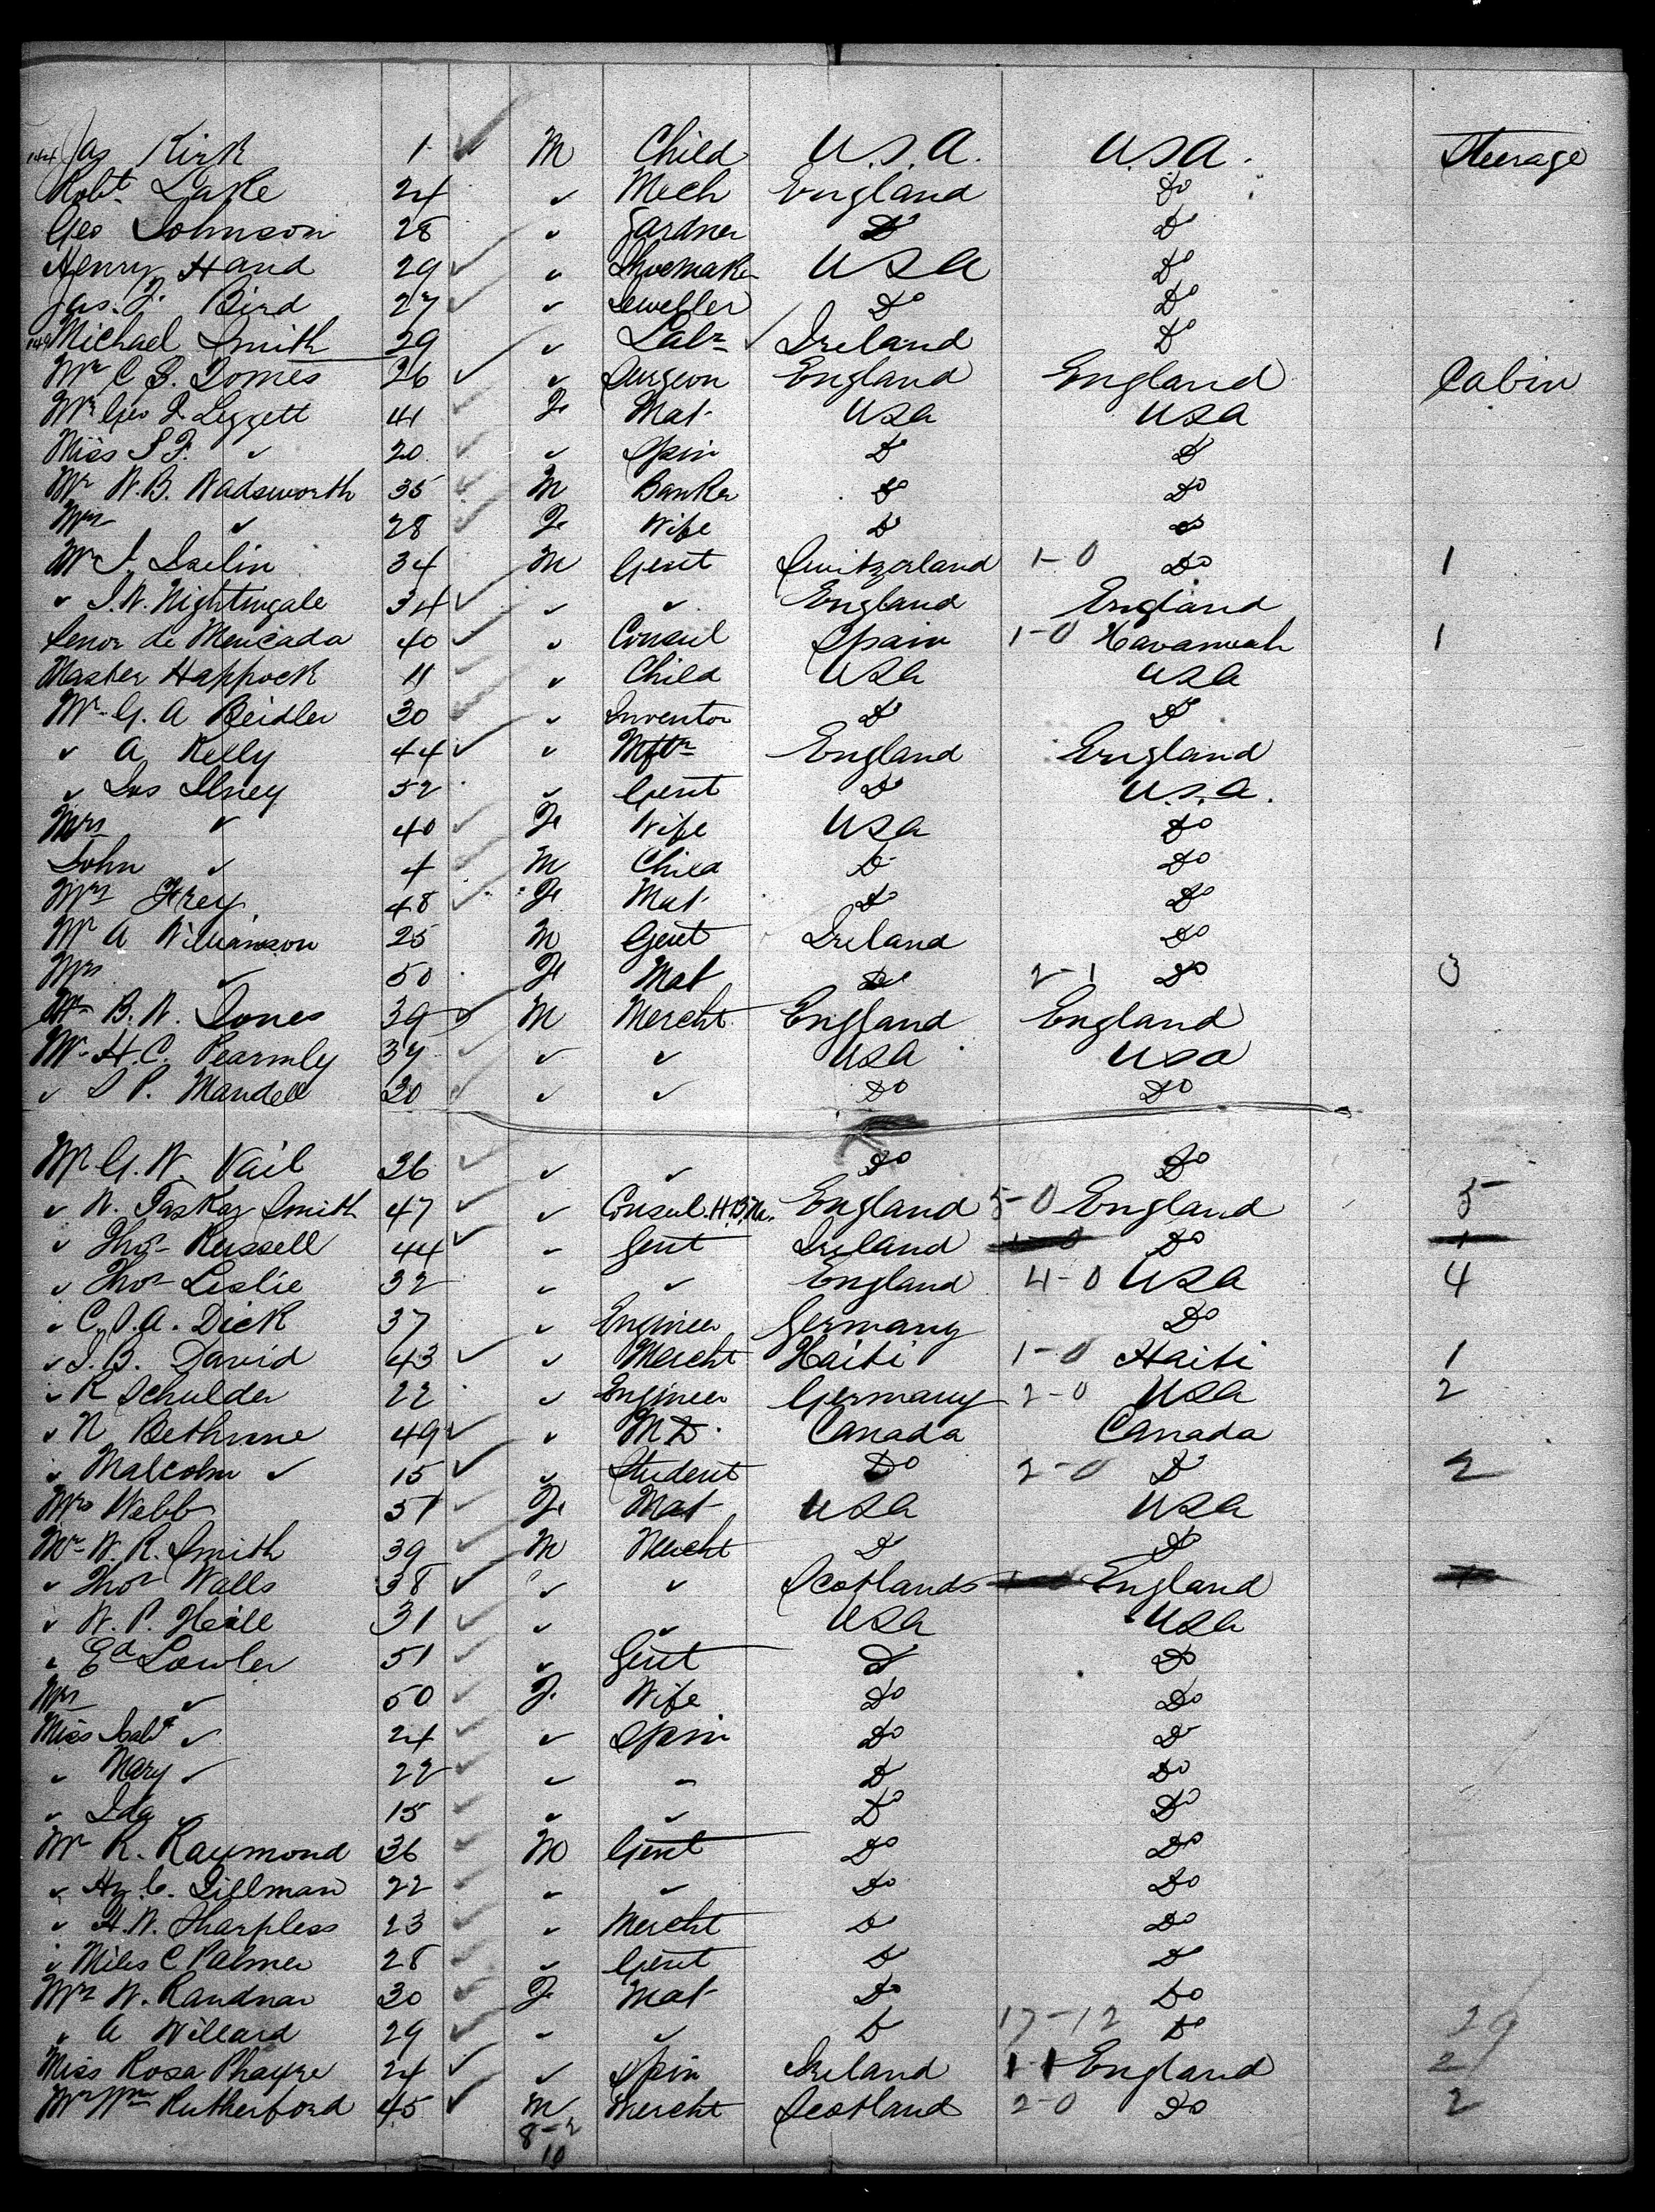 144 Jas Kirk 1 ✓ M Child U.S.A. USA. Steerage
Robt Lake 24 ✓ Mech England Do
Geo Johnson 28 ✓ Gardner Do Do
Henry Hand 29 ✓ ✓ Shoemaker USA Do
Jas. F. Bird 27 ✓ ✓ Jeweller Do Do
149 Michael Smith 29 ✓ Labr ✓ Ireland Do
Mr C S. Tomes 26 ✓ ✓ Surgeon England England Cabin
Mrs Geo J Leggett 41 ✓ F Mat USA USA
Miss S F. ✓ 20 ✓ ✓ Spin Do Do
Mr W.B. Wadsworth 35 ✓ M Banker Do Do
Mrs ✓ 28 ✓ F Wife Do Do
Mr J. 34 M Gent Switzerland 1-0 Do 1
✓ J.W. Nightingale 34 ✓ ✓ ✓ England England
Senor de Mencada 40 ✓ ✓ Consul Spain 1-0 Havannah 1
Master Happock 11 ✓ ✓ Child USA USA
Mr G. A Beidler 30 ✓ ✓ Inventor Do Do
✓ A Kelly 44 ✓ ✓ Mftr England England
✓ Jos 52 ✓ Gent Do U.S.A.
Mrs ✓ 40 ✓ F Wife USA Do
John ✓ 4 ✓ M Child Do Do
Mrs Frey 48 ✓ F Mat Do Do
Mr A Williamson 25 M Gent Ireland Do
Mrs ✓ 50 F Mat Do 2-1 Do 3
Mr B.W. Jones 39 ✓ M Mercht England England
Mr H.C. Pearmly 37 ✓ ✓ ✓ USA USA
✓ S P. Mandell 20 ✓ ✓ ✓ Do Do
Mr G.W. Vail 26 ✓ ✓ ✓ Do Do
✓ W. Taskar Smith 47 ✓ ✓ Consul H.B.M. England 5-0 England 5
✓ Thos Russell 44 ✓ ✓ Gent Ireland Do
✓ Thos Leslie 32 ✓ ✓ England 4-0 USA 4
✓ C.J.A. Dick 37 ✓ Engineer Germany Do
✓ J.B. David 43 ✓ ✓ Mercht Haiti 1-0 Haiti 1
✓ R Schulder 22 ✓ Engineer Germany 2-0 USA 2
✓ N Bethune 49 ✓ ✓ M D. Canada Canada
✓ Malcolm ✓ 15 ✓ ✓ Student Do 2-0 Do 2
Mrs Webb 51 ✓ F Mat USA USA
Mr W.R. Smith 39 ✓ M Mercht Do Do
✓ Thos Walls 38 ✓ ✓ ✓ Scotland England
✓ W.P. 31 ✓ ✓ ✓ USA USA
✓ Ed Lowler 51 ✓ ✓ Gent Do Do
Mrs ✓ 50 ✓ F. Wife Do Do
Miss Isabl ✓ 24 ✓ ✓ Spin Do Do
✓ Mary ✓ 22 ✓ ✓ ✓ Do Do
✓ Ida ✓ 15 ✓ ✓ ✓ Do Do
Mr R. Raymond 36 ✓ M Gent Do Do
✓ Hy C. Tillman 22 ✓ ✓ ✓ Do Do
✓ H.W. Sharpless 23 ✓ ✓ Mercht Do Do
✓ Miles C Palmer 28 ✓ ✓ Gent Do Do
Mrs W. 30 ✓ F Mat Do Do
✓ A Willard 29 ✓ ✓ ✓ Do 17-12 Do 29
Miss Rosa Phayre 24 ✓ ✓ Spin Ireland 1-1 England 2
Mr Wm Rutherford 45 ✓ M Mercht Scotland 2-0 Do 2
8-2
10